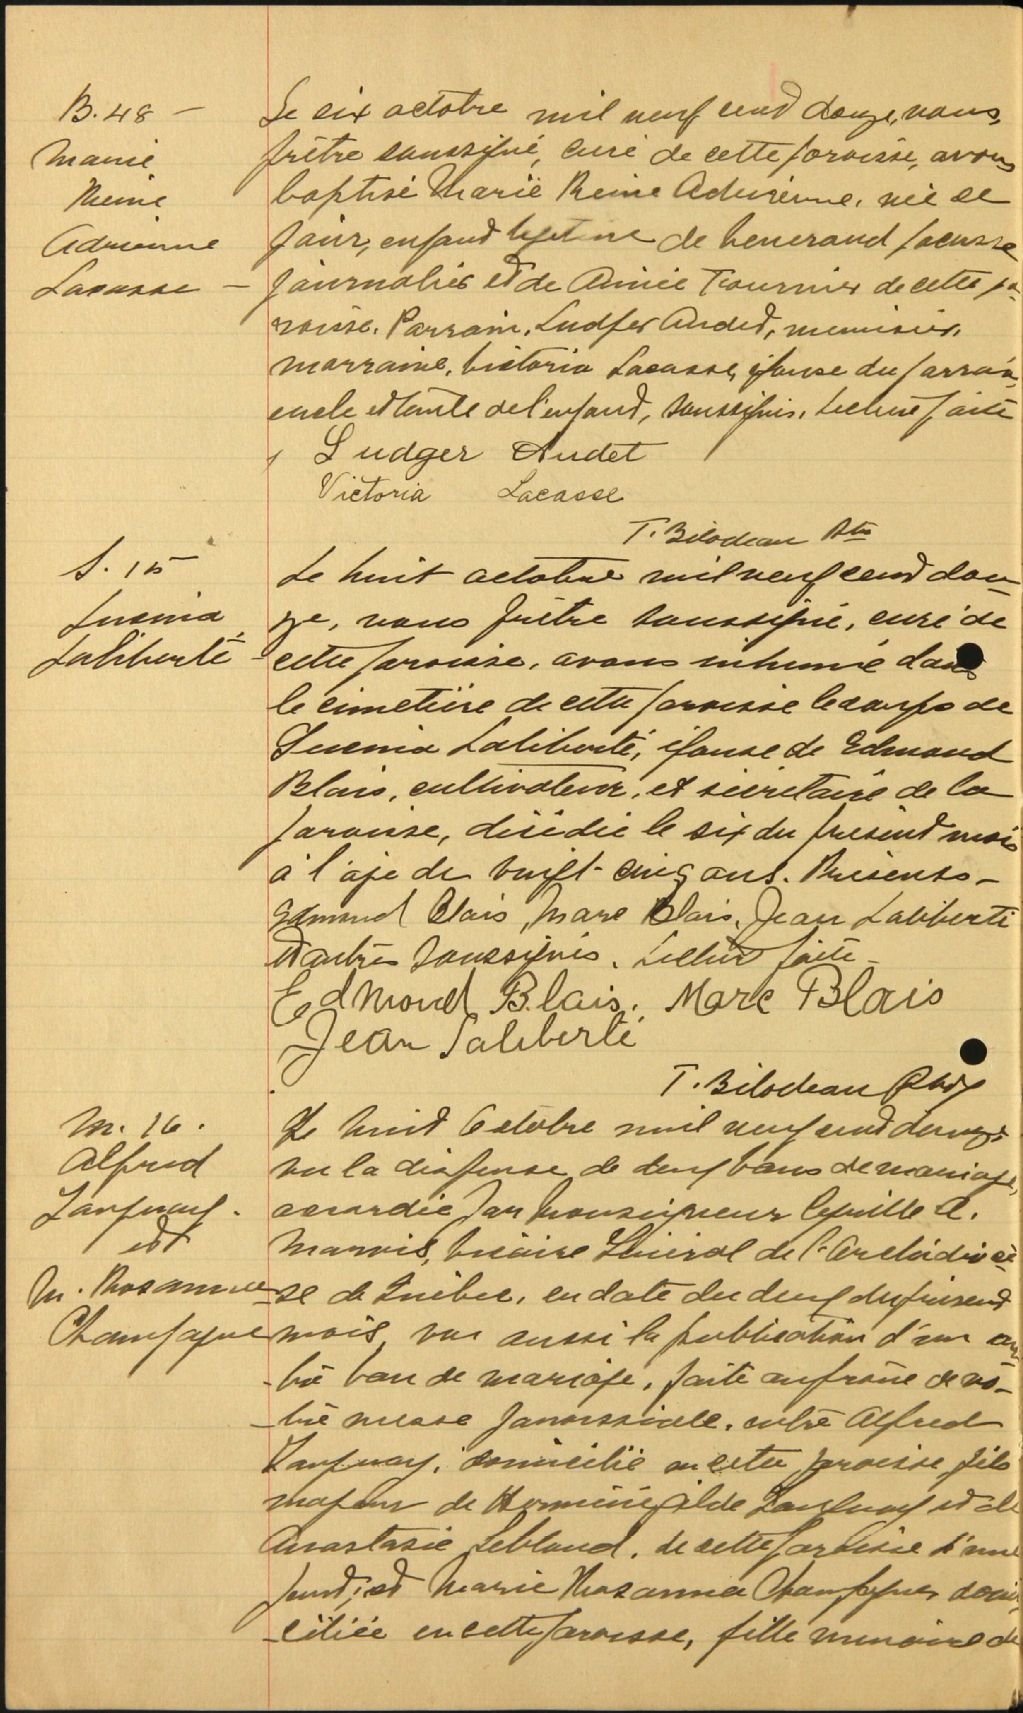 B. 48 –
Marie
Reine
Adrienne
Lacasse –
Le six octobre mil neuf cent douze, nous,
prêtre soussigné, curé de cette paroisse, avons
baptisé Marie Reine Adrienne, née ce
jour, enfant légitime de Lacasse
journalier et de Aimée Fournier de cette pa-
roisse. Parrain, Ludger Audet, menuisier,
marraine, Victoria Lacasse, épouse du parrain,
oncle et tante de l'enfant, soussignés. Lecture faite
Ludger Audet
Victoria Lacasse
T. Bilodeau Ptre
S. 15
Laliberté
Le huit octobre mil neuf cent dou-
ze, nous prêtre soussigné, curé de
cette paroisse, avons inhumé dans
le cimetière de cette paroisse le corps de
Laliberté, épouse de Edmond
Blais, cultivateur, et secrétaire de la
paroisse, décédée le six du présent mois
à l'âge de vingt-cinq ans. Présents –
Edmond Blais, Marc Blais, Jean Laliberté
et autres soussignés. Lecture faite –
Edmond Blais. Marc Blais
Jean Laliberté
T. Bilodeau Ptre
M. 16.
Alfred
Tanguay.
et
M. Rosanna
Champagne
Le huit Octobre mil neuf cent douze
vu la dispense de deux bans de mariage,
accordée par Monseigneur Cyrille A.
Marois, Vicaire Général de l'Archidiocè-
se de Québec, en date du deux du présent
mois, vu aussi la publication d'un au-
tre ban de mariage, faite au prône de no-
tre messe paroissiale, entre Alfred
Tanguay, domicilié en cette paroisse, fils
majeur de Herménégilde Tanguay et de
Anastasie Leblond, de cette paroisse d'une
part; et Marie Rosanna Champagne, domi-
ciliée en cette paroisse, fille mineure de